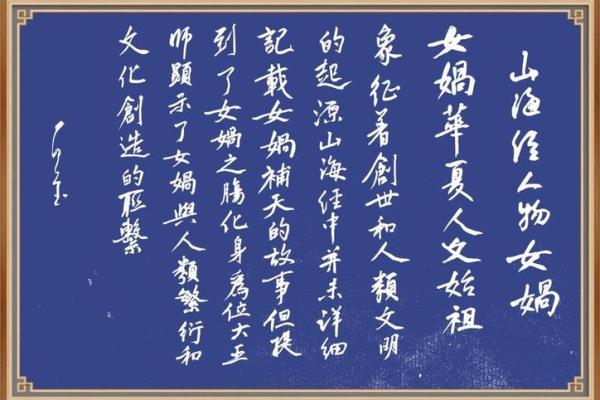 山海经人物女媧
女媧華夏人文始祖
象征著創世和人類文明
的起源山海经中并未详细
記載女媧補天的故事但提
到了女媧之膓化身為位大王
师顯示了女媧與人類繁衍和
文化創造的联繫